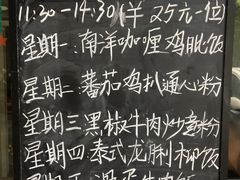 11:30-14:30(羊 25元一位)
星期一:南洋咖喱鸡肶饭
星期二:蕃茄鸡扒通心粉
星期三黑椒牛肉炒意粉
星期四泰式龙脷柳饭